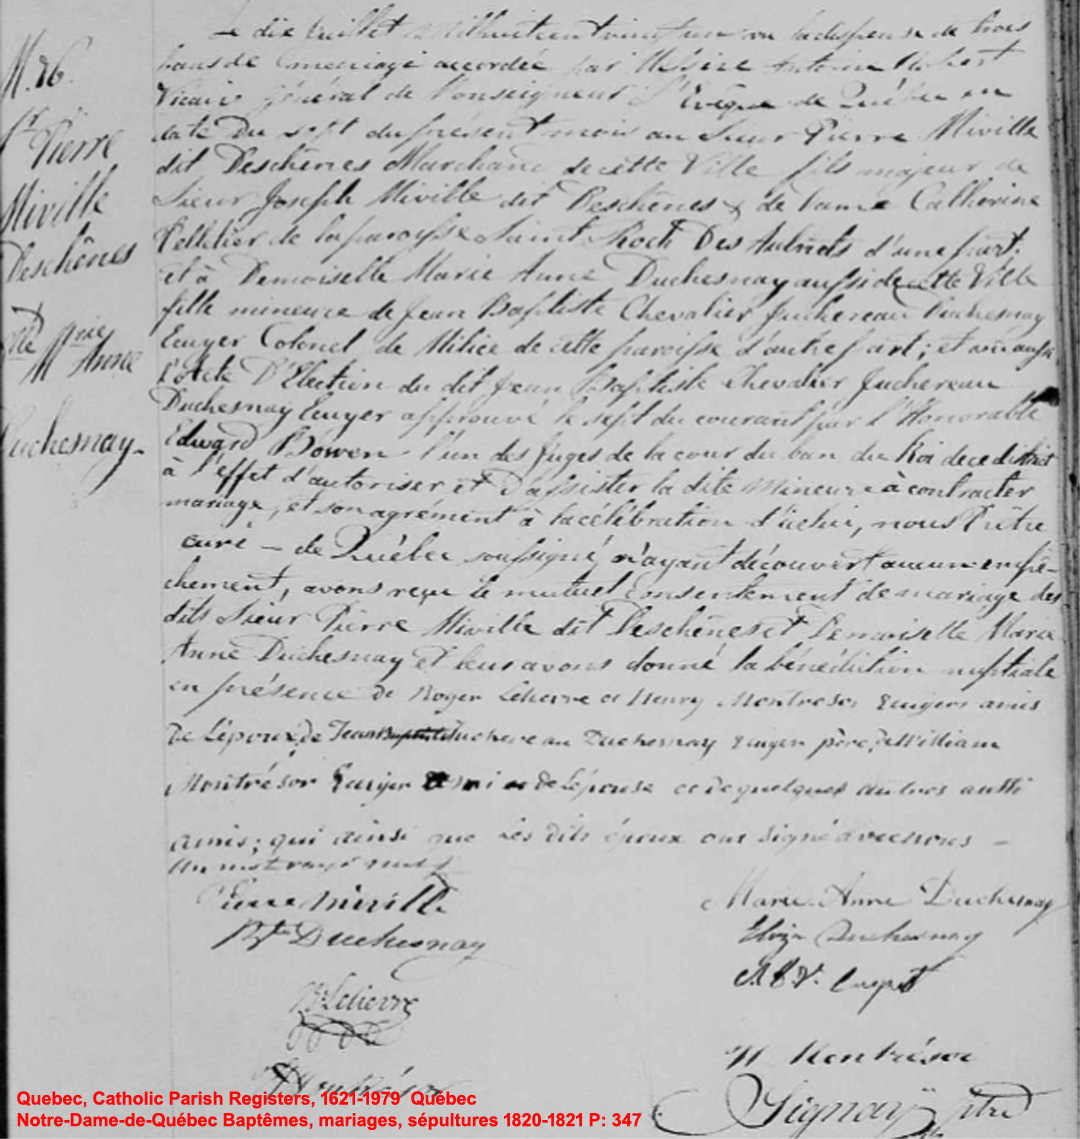 Le dix juillet milhuitcentvingt un vu la dispense de trois
bans de mariage accordée par Messire Antoine Robert
Vicaire Général de Monseigneur L'Evêque de Québec en
date du sept du présent mois au Sieur Pierre Miville
dit Deschênes Marchand de cette Ville fils majeur de
Sieur Joseph Miville dit Deschênes & de Dame Catherine
Pelletier de la paroisse Saint Roch Des Aulnets d'une part;
et à Demoiselle Marie Anne Duchesnay aussi de cette Ville
fille mineure de Jean Baptiste Chevalier Juchereau Duchesnay
Ecuyer Colonel de Milice de cette paroisse d'autre part; et vu aussi
l'Acte D'Election du dit Jean Baptiste Chevalier Juchereau
Duchesnay Ecuyer approuvé le sept du courant par l'Honorable
Edward Bowen l'un des Juges de la cour du ban du Roi de ce district
à l'effet d'autoriser et d'assister la dite Mineure à contracter
mariage, et son agrément à la célébration d'icelui, nous Prêtre
curé — de Québec soussigné n'ayant découvert aucun empê-
chement, avons reçu le mutuel Consentement de mariage des
dits Sieur Pierre Miville dit Deschênes et Demoiselle Marie
Anne Duchesnay et leur avons donné la bénédiction nuptiale
en présence de Roger Lelievre et Henry Montresor Ecuyers amis
De L'époux, De Jean Baptiste Juchereau Duchesnay Ecuyer père, De William
Montrésor Ecuyer ami de L'épouse et de quelques autres aussi
amis; qui ainsi que Les Dits époux ont signé avec nous —
M. 76.
Sr. Pierre
Miville
Deschênes
et
Dlle Mrie Anne
Duchesnay.
Pierre Miville
Bte Duchesnay
R. Lelievre
Montrésor
Marie Anne Duchesnay
Eliza Duchesnay
W Montrésor
Signaÿ ptre
Quebec, Catholic Parish Registers, 1621-1979 Québec
Notre-Dame-de-Québec Baptêmes, mariages, sépultures 1820-1821 P: 347